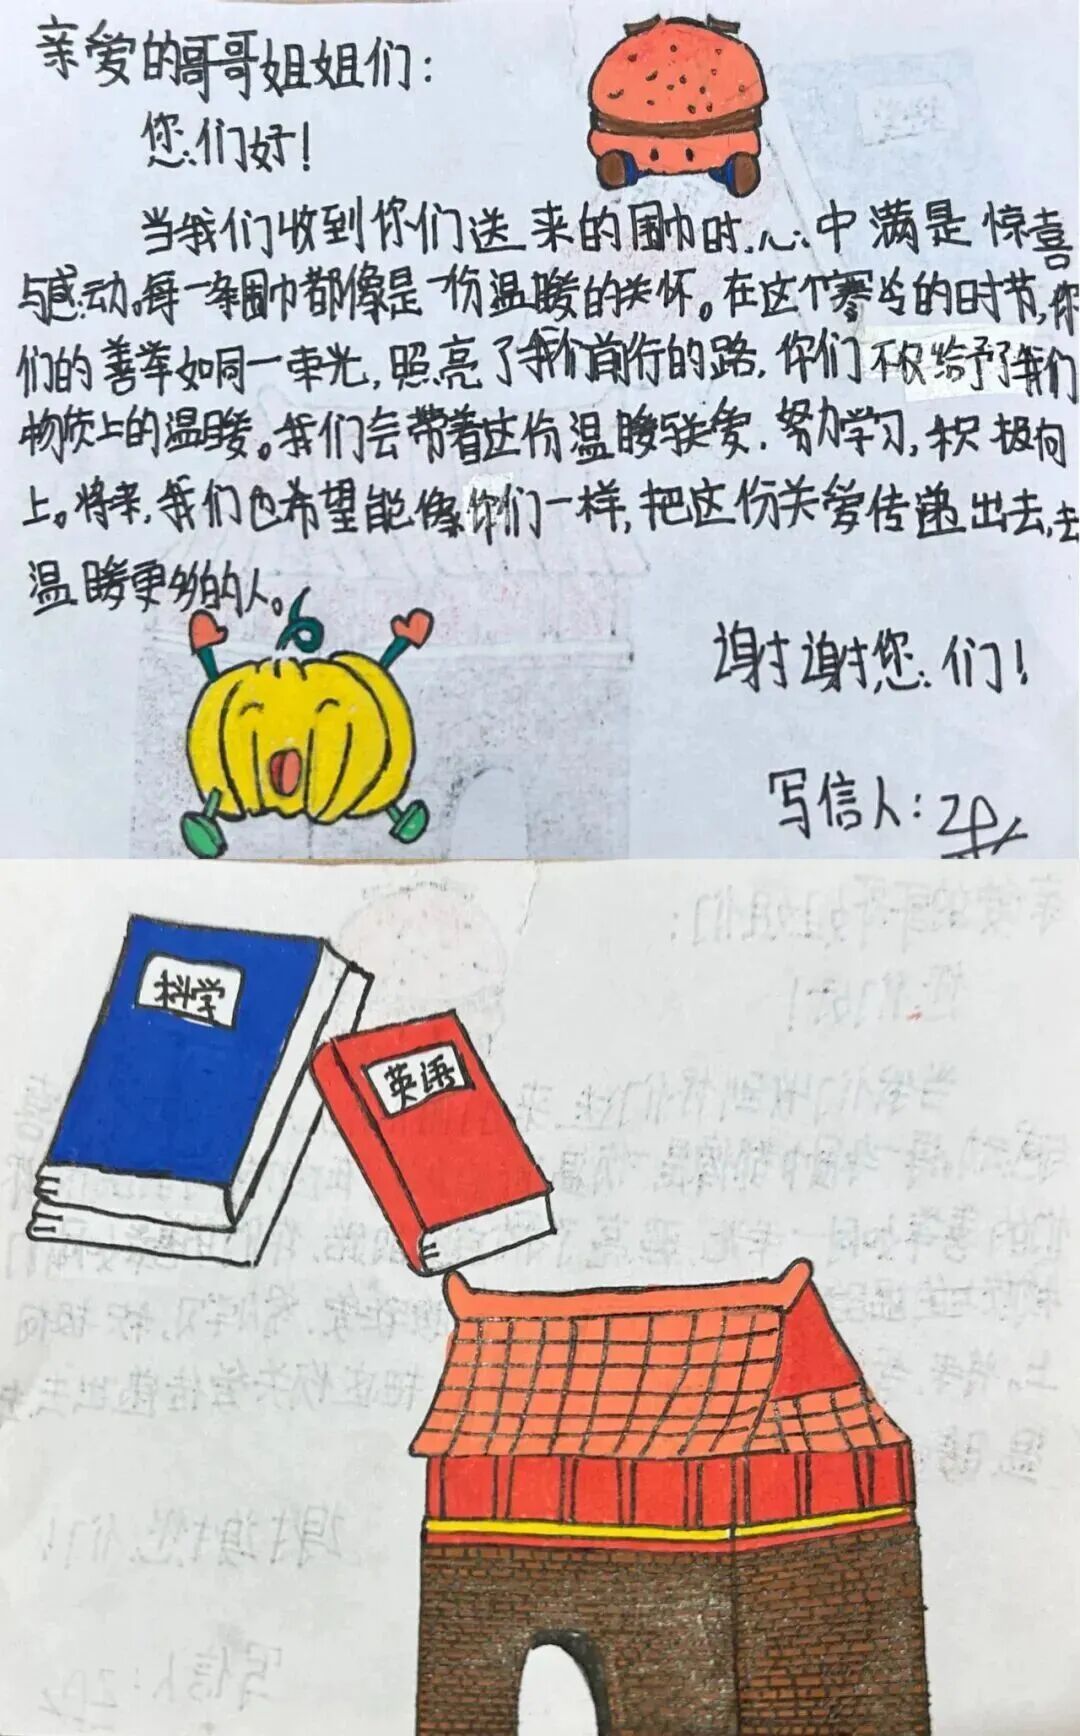 亲爱的哥哥姐姐们：
您们好！
当我们收到你们送来的围巾时，心中满是惊喜
与感动。每一条围巾都像是一份温暖的关怀。在这个寒冷的时节，你
们的善举如同一束光，照亮了我们前行的路，你们不仅给予了我们
物质上的温暖。我们会带着这份温暖与关爱，努力学习，积极向
上。将来，我们也希望能像你们一样，把这份关爱传递出去，去
温暖更多的人。
谢谢您们！
写信人：
科学
英语